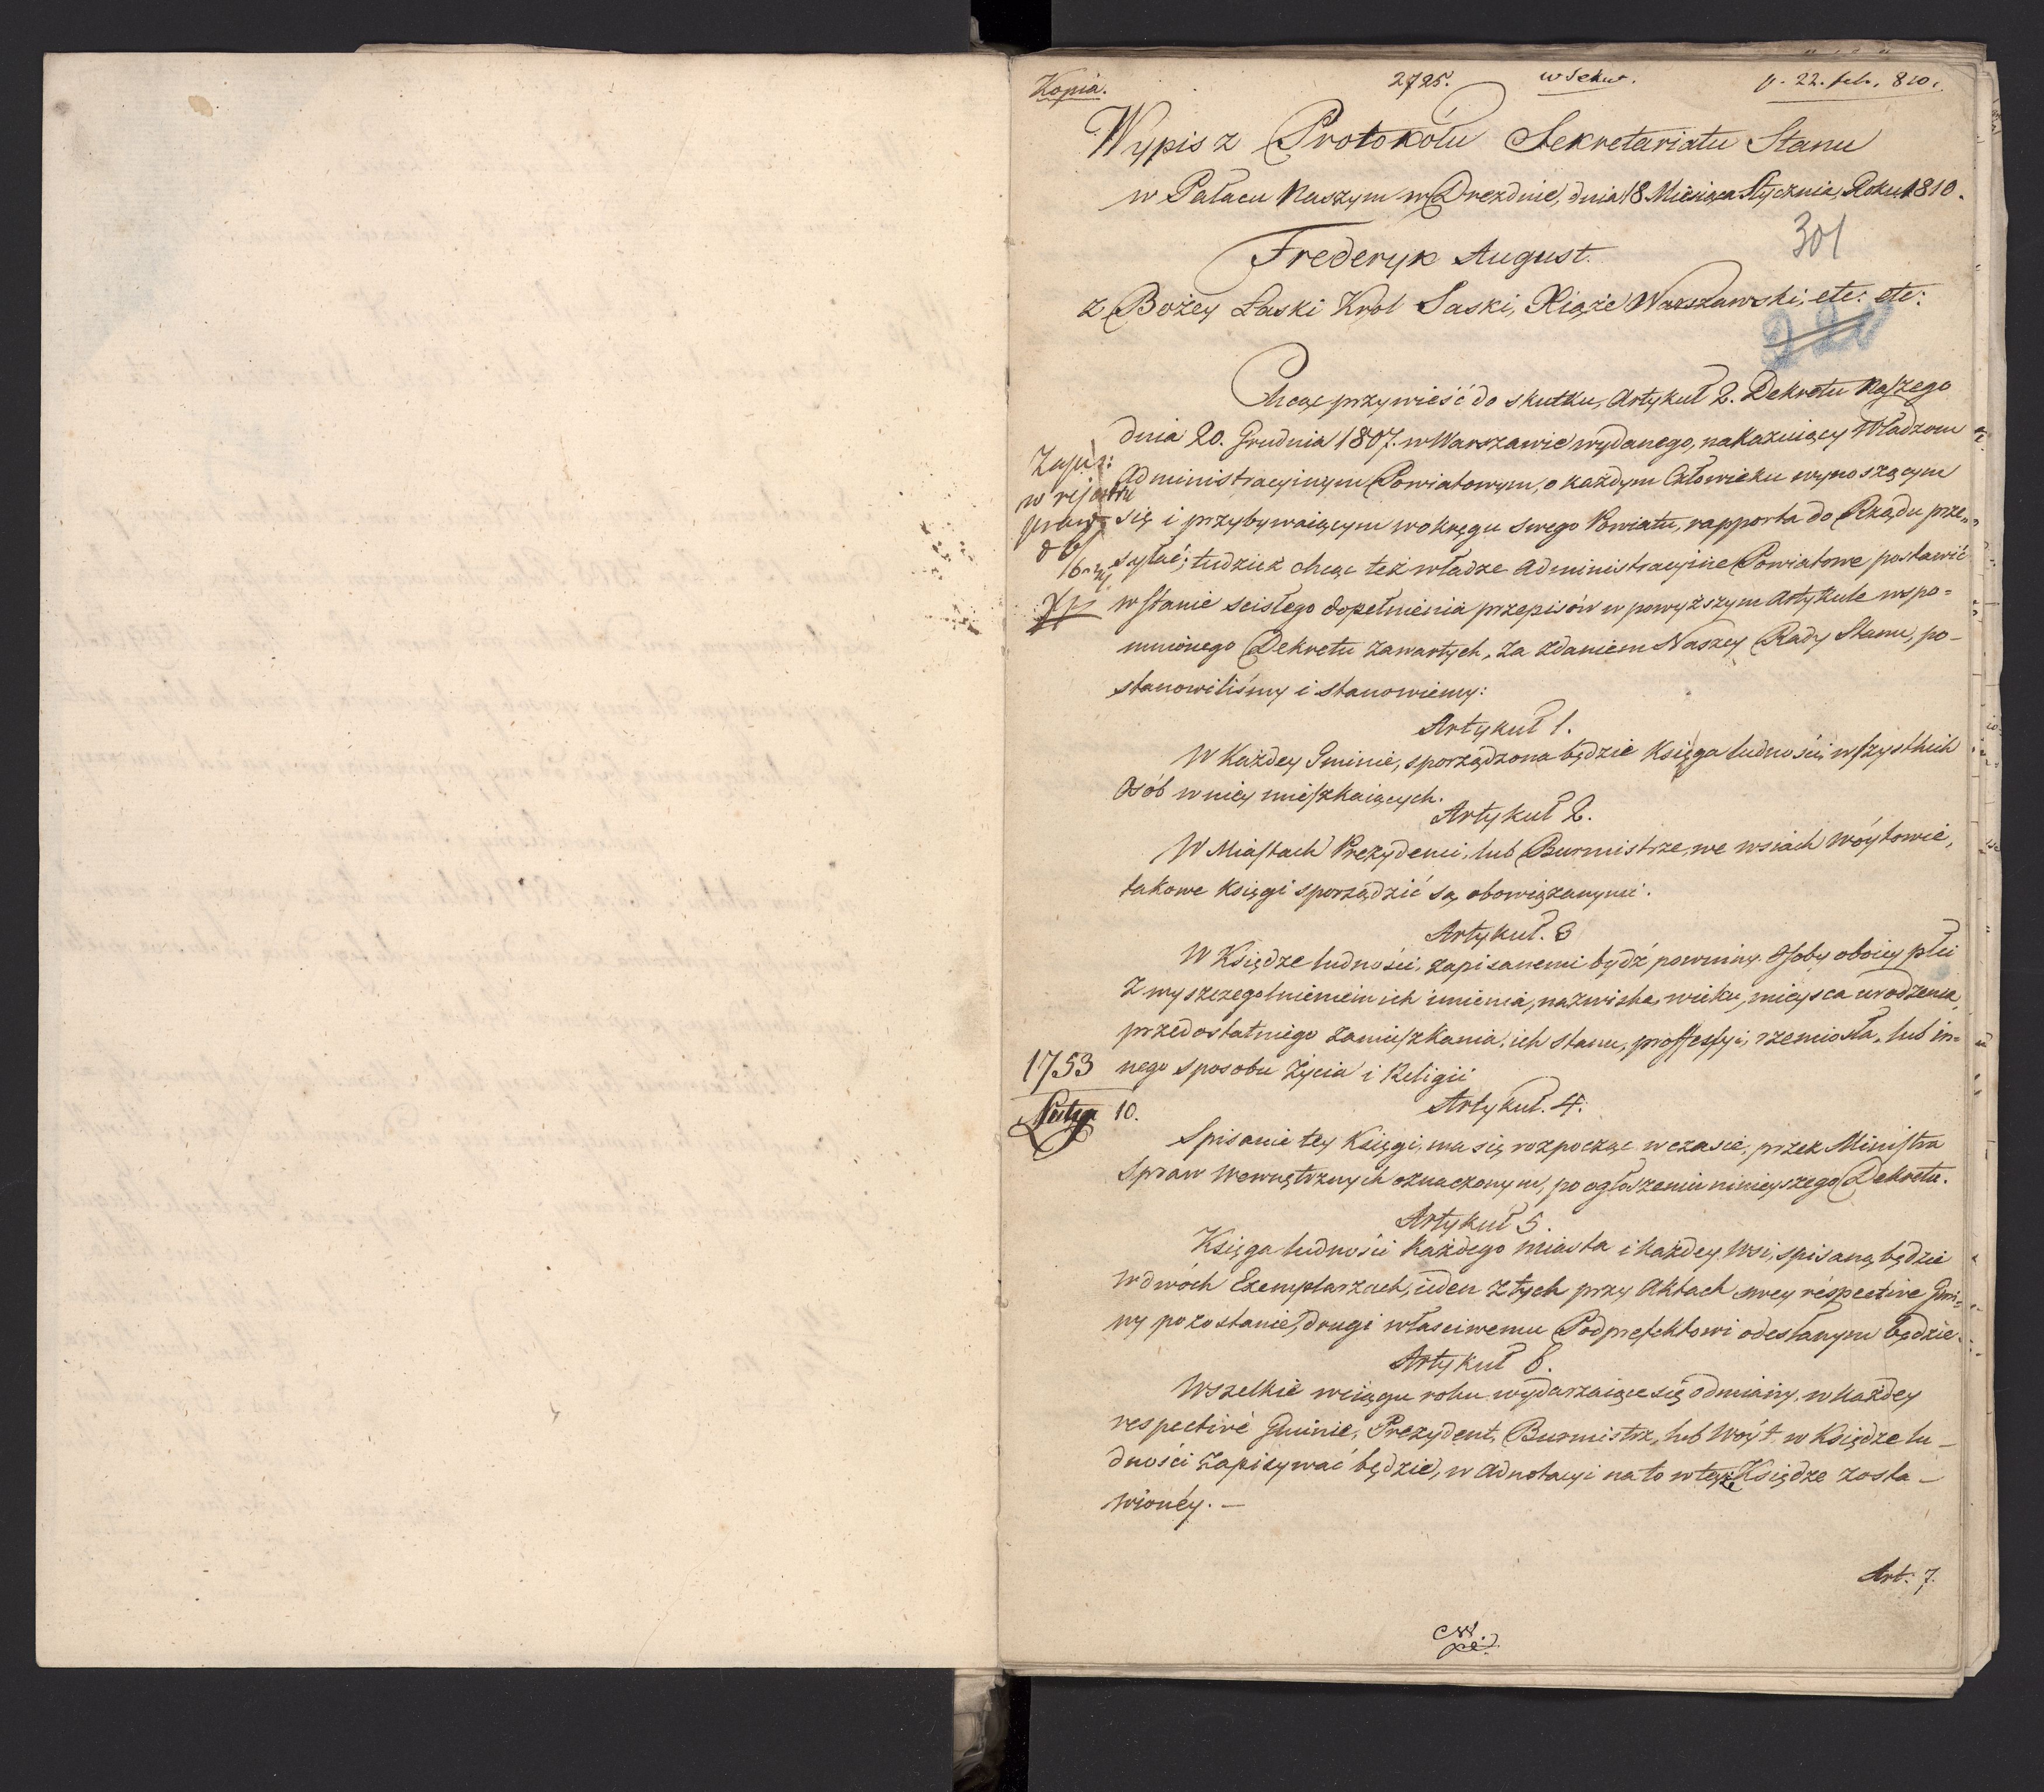 Kopia.
2725.
w Sekw.
22. feb. 810.
Wypis z Protokołu Sekretariatu Stanu
w Pałacu Naszym w Dreznie, dnia 18 Miesiąca Stycznia, Roku 1810.
301
Frederyk August.
z Bożey Łaski Krol Saski, Xiąże Warszawski; etc: etc:
Chcąc przywieść do skutku, Artykuł 2. Dekretu Naszego
dnia 20. Grudnia 1807. w Warszawie wydanego, nakazuiący Władzom
Administracyinym Powiatowym, o każdym Człowieku wynoszącym
się i przybywaiącym w okręgu swego Powiatu, rapporta do Rządu prze=
syłać; tudzież chcąc też władze Administracyine Powiatowe postawić
w stanie scisłego dopełnienia przepisów w powyższym Artykule wspo=
mnionego Dekretu zawartych, za zdaniem Naszey Rady Stanu, po-
stanowiliśmy i stanowiemy:
Artykuł 1.
W Każdey Gminie, sporządzona będzie Księga ludności wszystkich
Osób w niey mieszkaiących.
Artykuł 2.
W Miastach Prezydenci, lub Burmistrze, we wsiach Wóytowie,
takowe księgi sporządzić są obowiązanymi.
Artykuł. 3
W Księdze ludności, zapisanemi bydź powinny Osoby oboiey płci
z wyszczegolnieniem ich imienia, nazwiska, wieku, mieysca urodzenia,
przedostatniego zamieszkania, ich stanu, professyi, rzemiosła, lub in=
nego sposobu życia i Religii
1753
Lutego 10.
Artykuł. 4.
Spisanie tey Księgi, ma się rozpocząć w czasie, przez Ministra
Spraw Wewnętrznych oznaczonym, po ogłoszeniu ninieyszego Dekretu.
Artykuł 5.
Księga ludności każdego miasta i każdey Wsi, spisaną będzie
w dwóch Exemplarzach, ieden z tych przy Aktach swey respective Gmi=
ny pozostanie, drugi właściwemu Podprefektowi odesłanym będzie.
Artykuł 6.
Wszelkie w ciągu roku wydarzaiące się odmiany, w każdey
respectivé Gminie, Prezydent, Burmistrz, lub Wóyt w Księdze lu-
dności zapisywać będzie, w adnotacyi na to w teyże Księdze zosta-
wionéy. -
Art: 7.